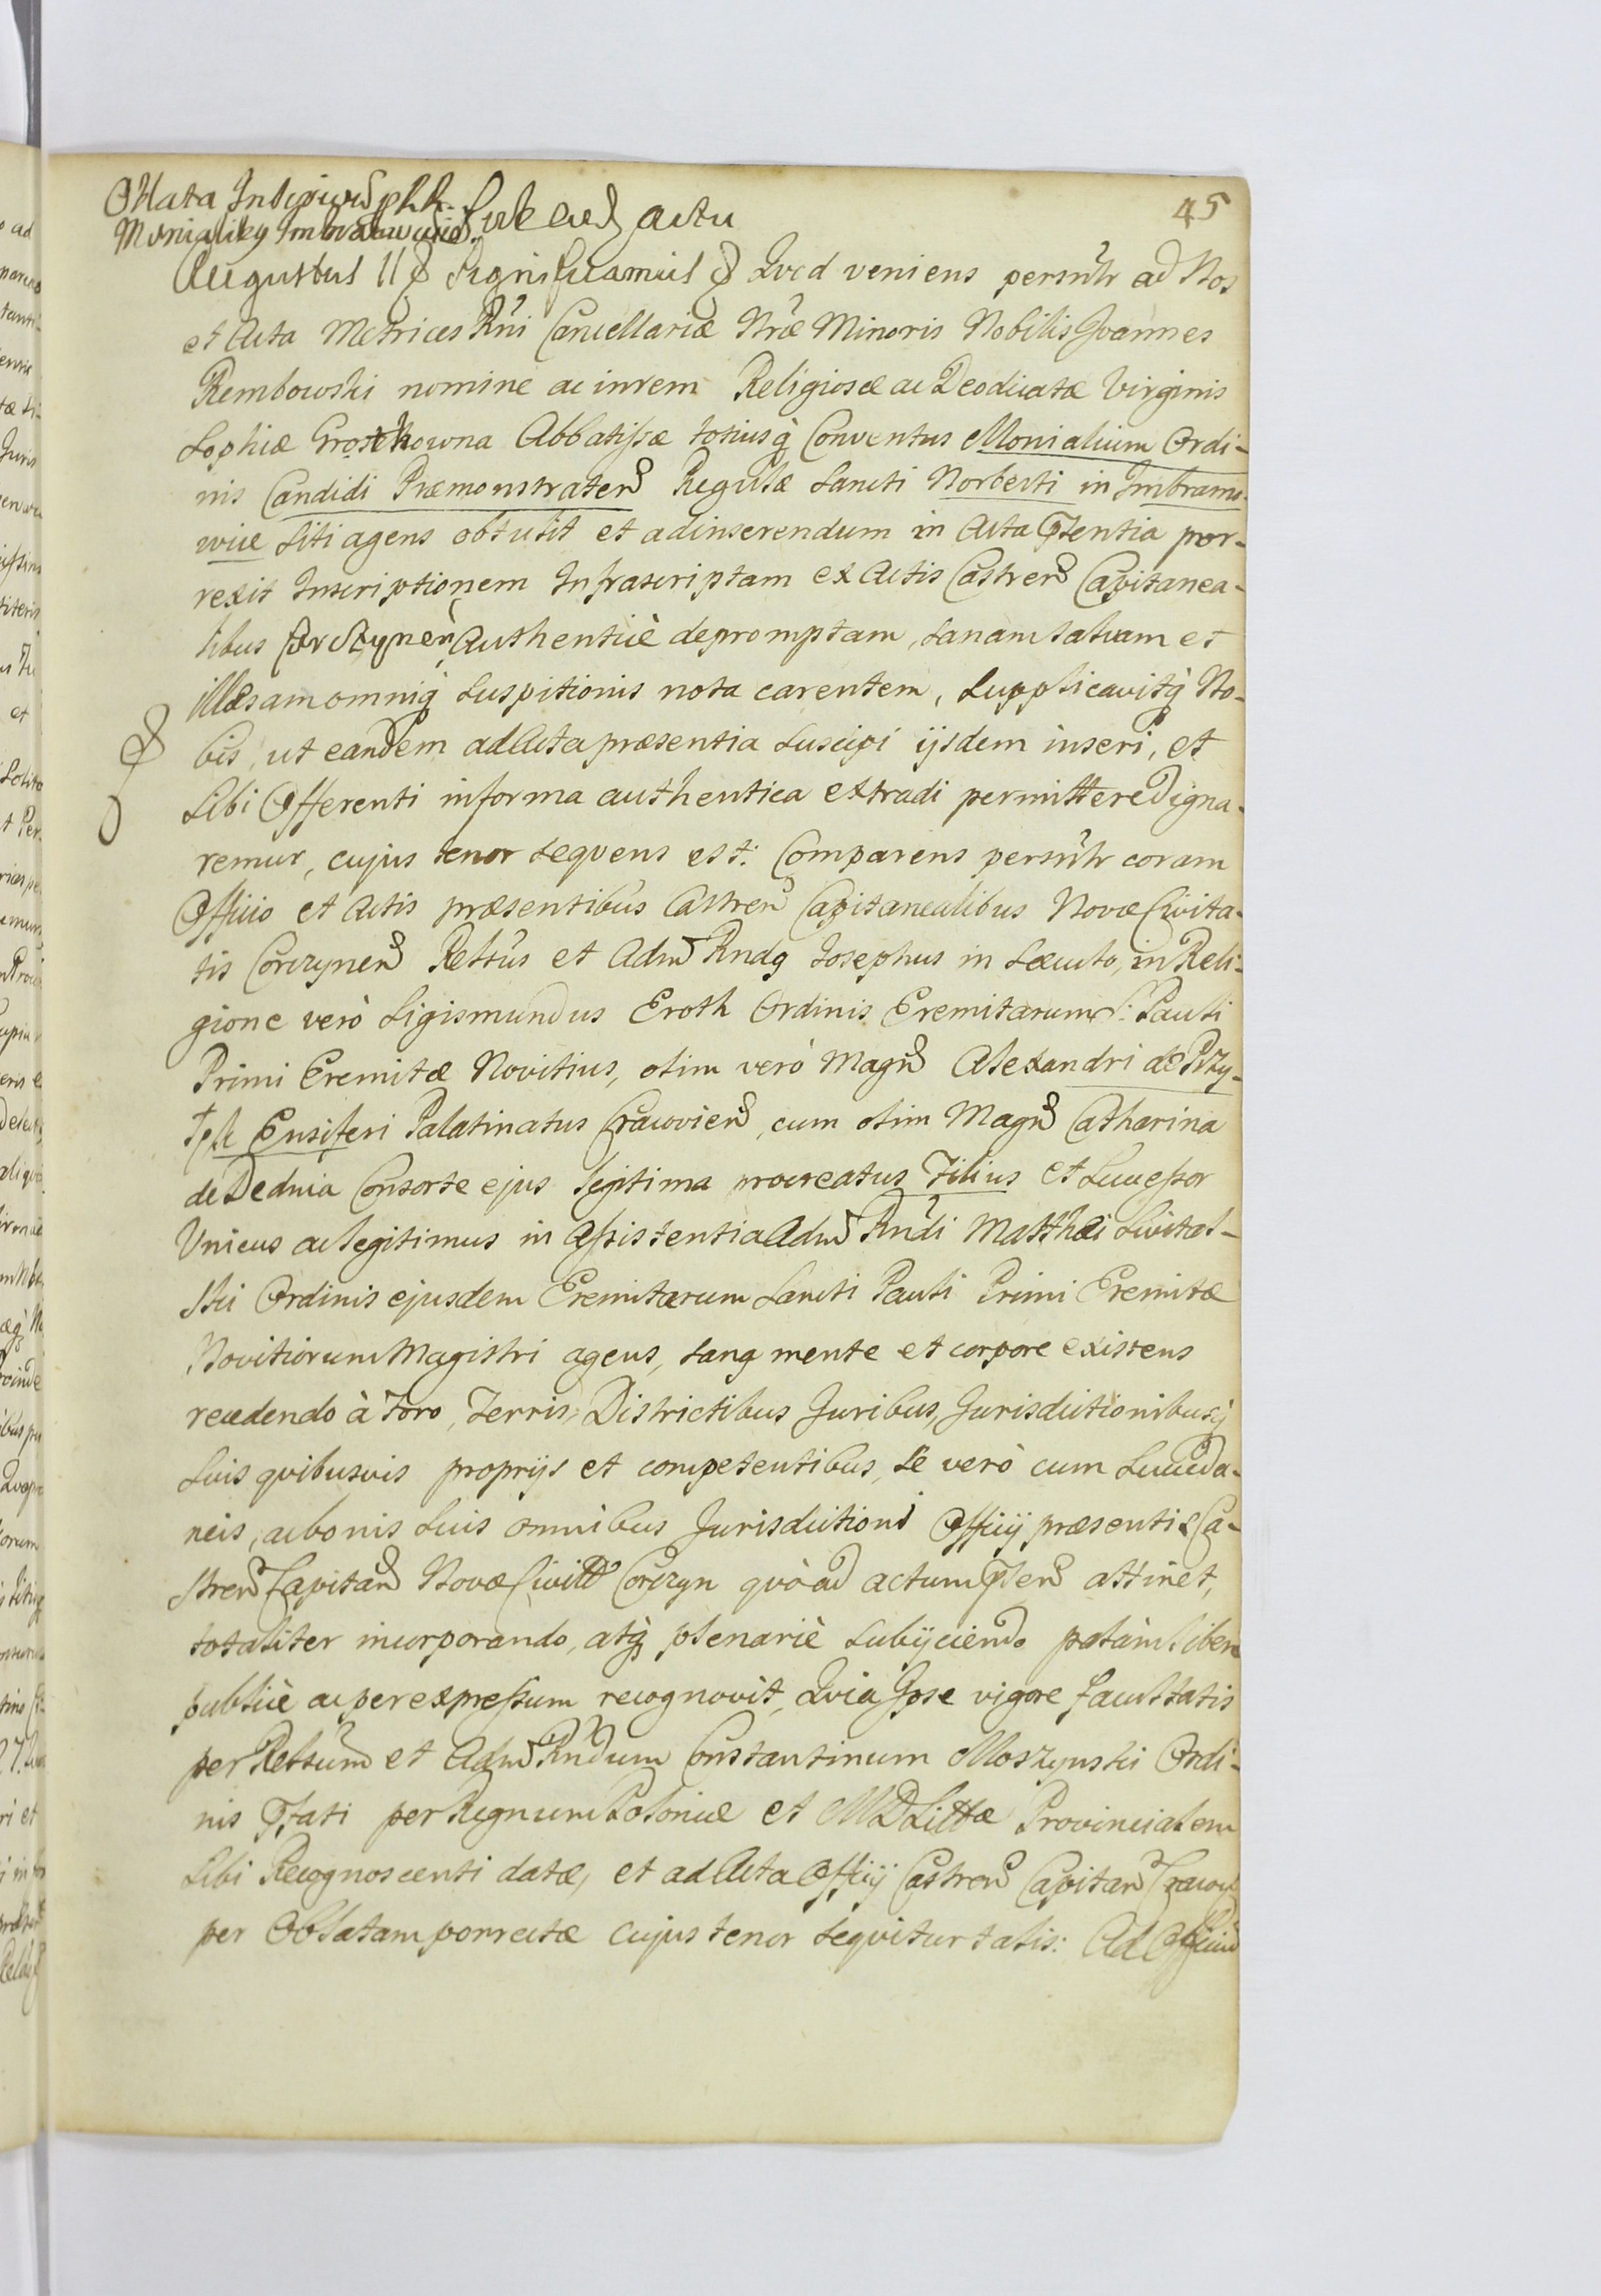 45
Oblata Inscrip
Monialibg Imbramovicē. Sub eod actu
Augustus II & Significamus & Qvod veniens persnłr ad Nos
et Acta Metrices Rni Cancellariæ Nræ Minoris Nobilis Joannes
Rembowski nomine ac in rem Religiosæ ac Deodicatæ Virginis
Sophiæ Grotkowna Abbatissæ totiusq Conventus Monialium Ordi-
nis Candidi Præmonstraten Regulæ Sancti Norberti in Imbramo-
wice Siti agens obtulit et ad inserendum in Acta Pſentia por-
rexit Inscriptionem Infrascriptam ex Actis Castren Capitanea-
libus Corczynen Authenticè depromptam, Sanam Salvam et
illæsam omniq Suspitionis nota carentem, Supplicavitq No-
bis, ut eandem ad Acta præsentia Suscipi ijsdem inseri, et
Sibi Offerenti in forma authentica extradi permittere Digna-
remur, cujus tenor Seqvens est: Comparens persnłr coram
Officio et Actis præsentibus Castren Capitanealibus Novæ Civita-
tis Corczynen Relsus et Adm Rndg Josephus in Sæculo, in Reli-
gione verò Sigismundus Eroth Ordinis Eremitarum S: Pauli
Primi Eremitæ Novitius, olim verò Magn Alexandri de Przy-
łęk Ensiferi Palatinatus Cracovien, cum olim Magn Catharina
de Dednia Consorte ejus legitima procreatus Filius et Successor
Unicus ac legitimus in Assistentia Adm Rndi Matthæi Swital-
ski Ordinis ejusdem Eremitarum Sancti Pauli Primi Eremitæ
Novitiorum Magistri agens, Sang mente et corpore existens
recedendo à Foro, Terris, Districtibus Juribus, Jurisdictionibusq
Suis qvibusvis proprijs et competentibus, Se verò cum Succeda-
neis, ac bonis Suis omnibus Jurisdictioni Officij præsentis Ca-
stren Capitan Novæ Civitt Corczyn qvò ad actum Pſen attinet,
totaliter incorporando, atq plenariè Subijciendo palàm libere
publicè ac per expressum recognovit, Qvia Ipse vigore facultatis
per Relsum et Adm Rndum Constantinum Moszynski Ordi-
nis Pſati per Regnum Poloniæ et M D Littæ Provincialem
Sibi Recognoscenti datæ, et ad Acta Officij Castren Capitan Cracov
per Oblatam porrectæ cujus tenor Seqvitur talis: Ad Officium